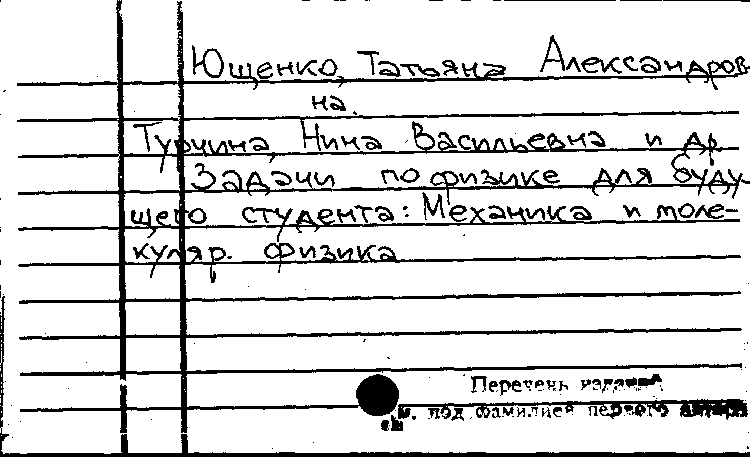 Ющенко, Татьяна Александров-
на.
Турчина, Нина Васильевна и др
Задачи по физике для буду-
щего студента: Механика и моле-
куляр. физика
Перечень изданий
см. под фамилией первого автора